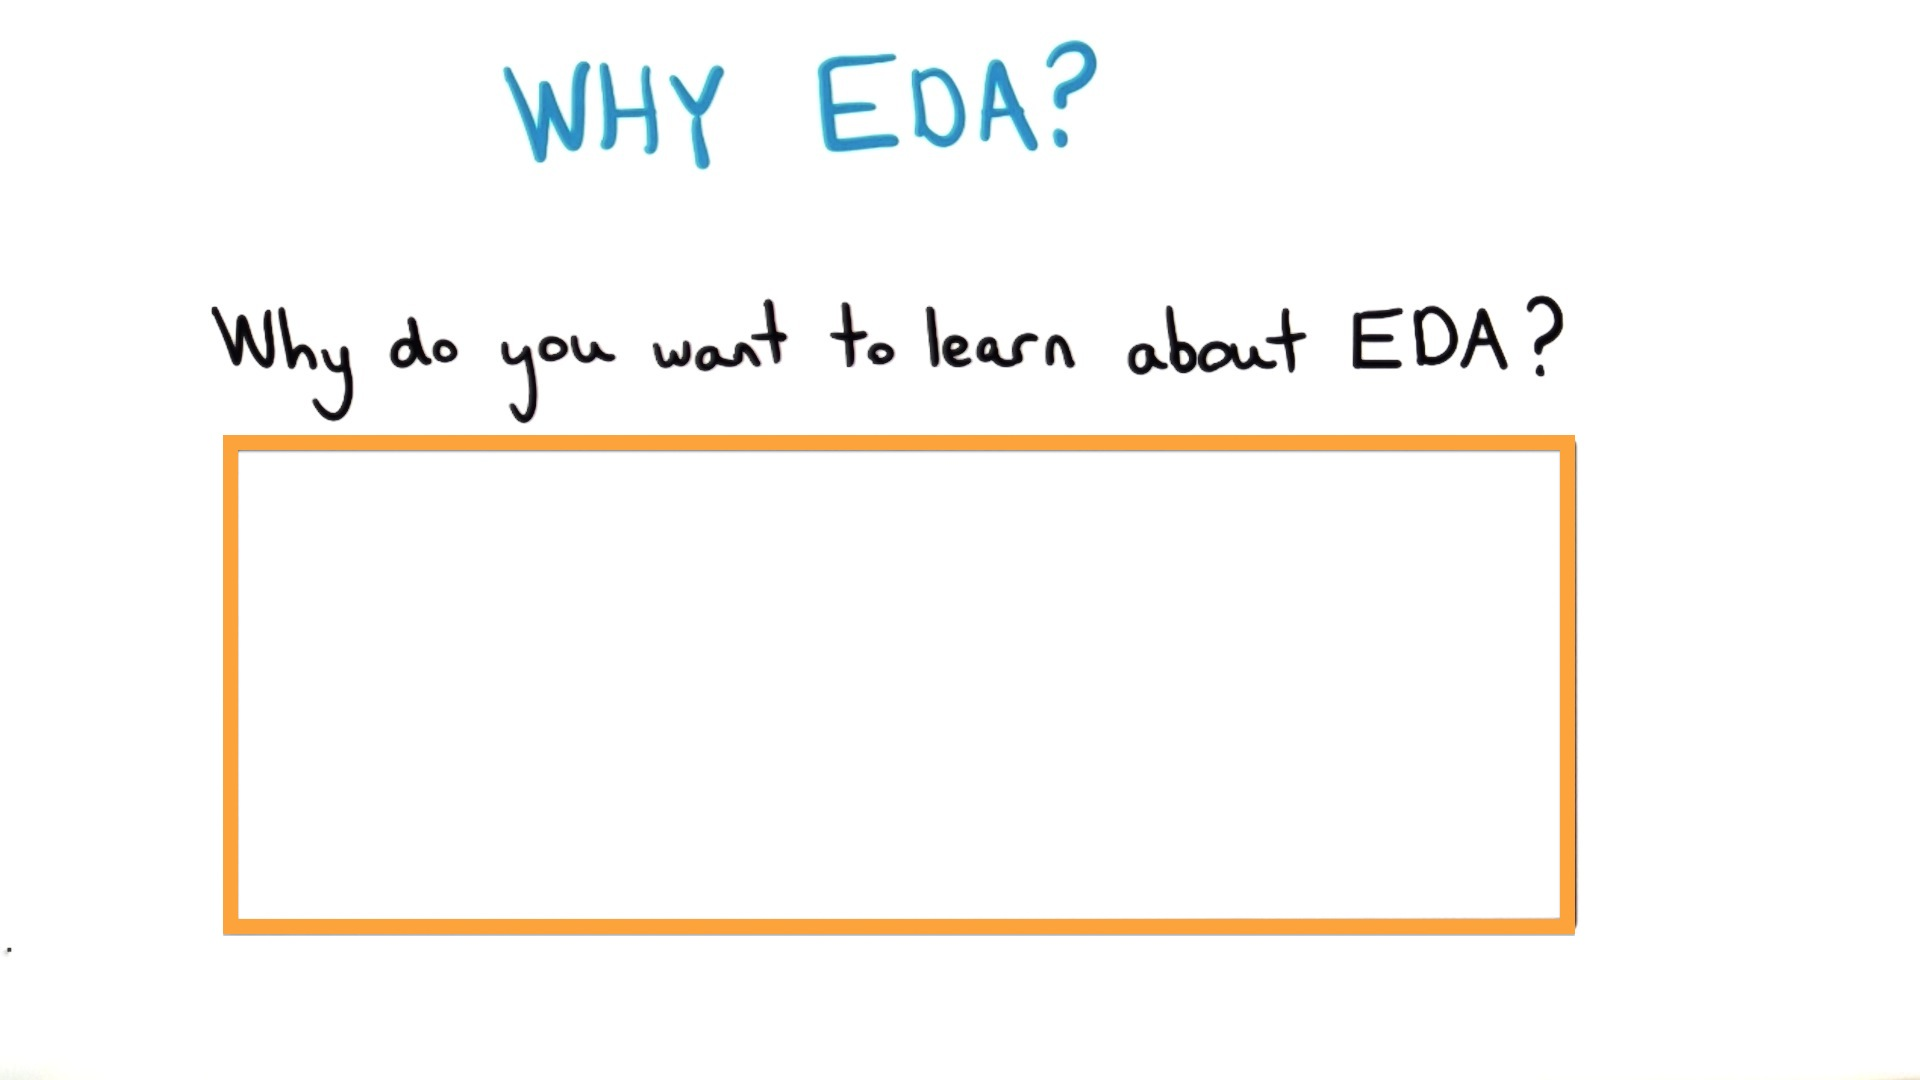 WHY EDA?
Why do you want to learn about EDA?